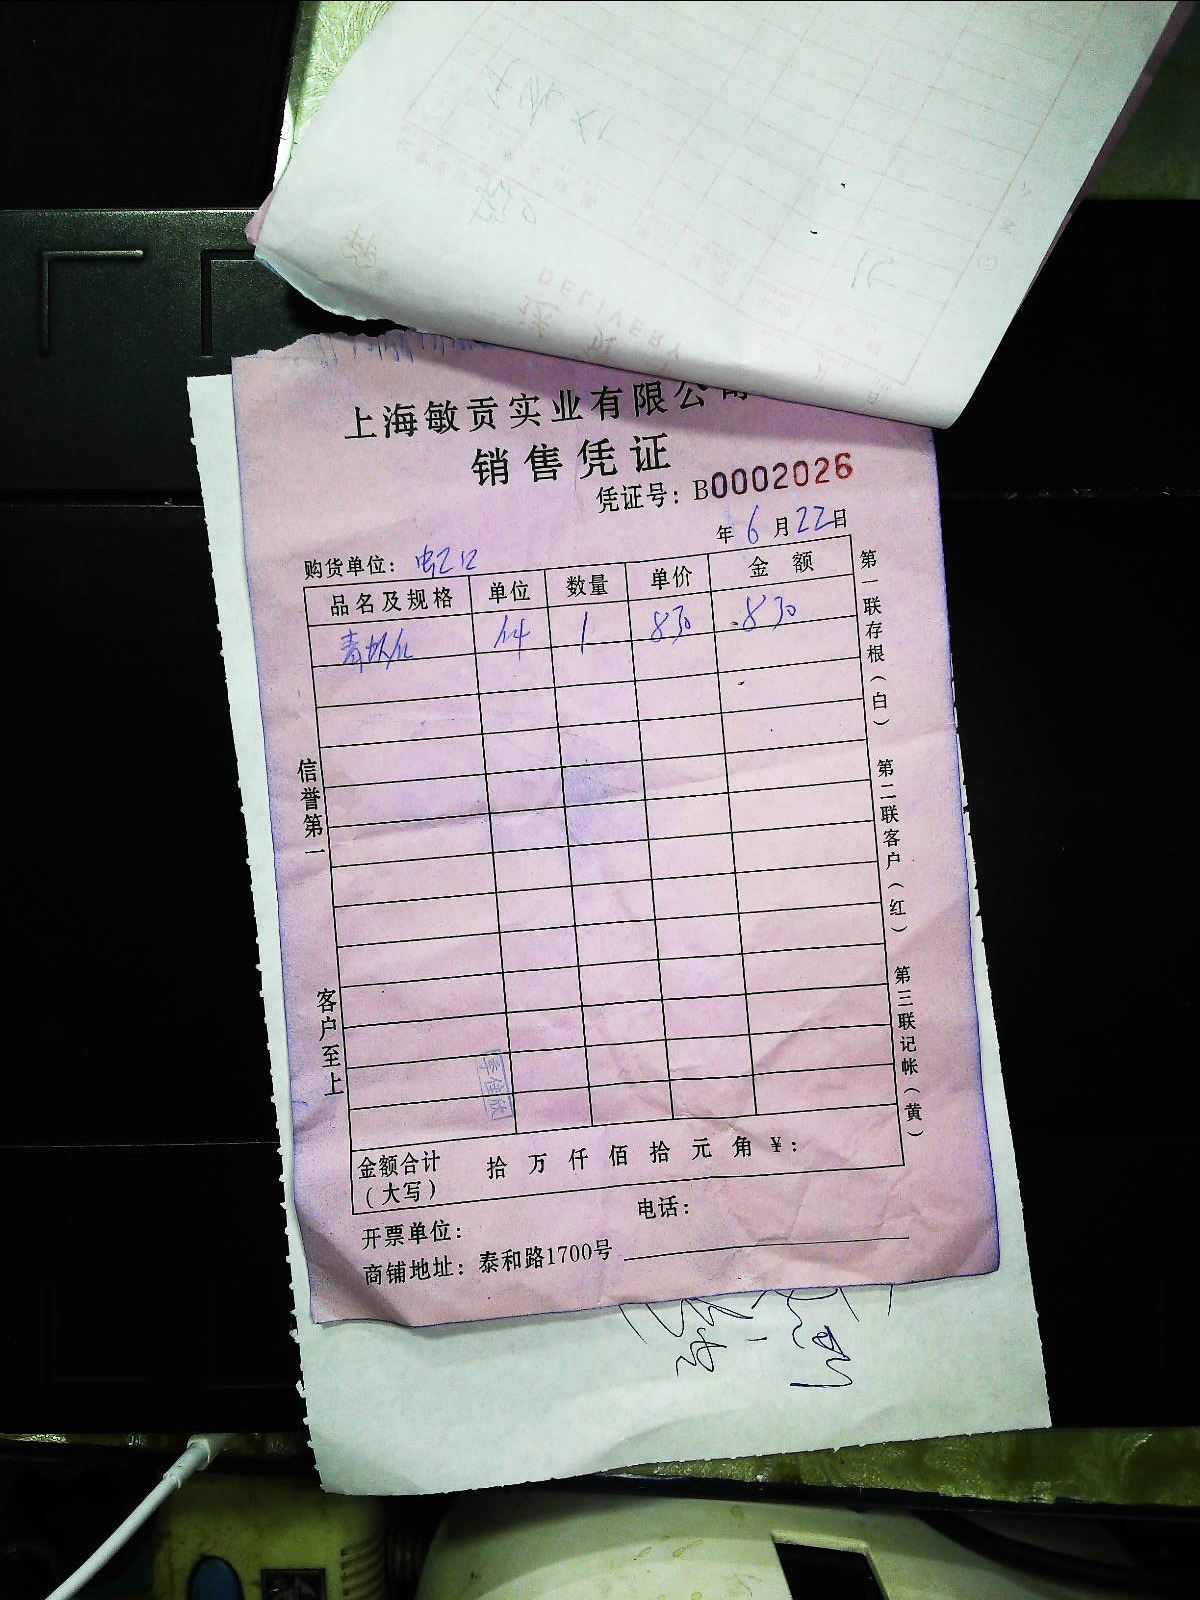 DELIVERY
上海敏贡实业有限公司
销售凭证
凭证号：B0002026
年 6 月 22 日
购货单位：虹口
品名及规格 单位 数量 单价 金额
件 1 830 830
信誉第一
客户至上
第一联存根（白）
第二联客户（红）
第三联记帐（黄）
李佳欣
金额合计（大写） 拾 万 仟 佰 拾 元 角 ￥：
开票单位： 电话：
商铺地址：泰和路1700号